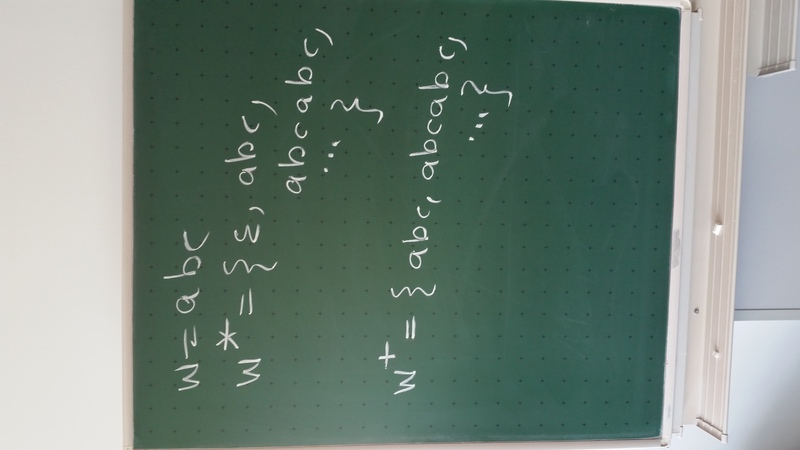 w = abc
w* = {ε, abc,
abcabc,
... }
w⁺ = {abc, abcabc,
... }